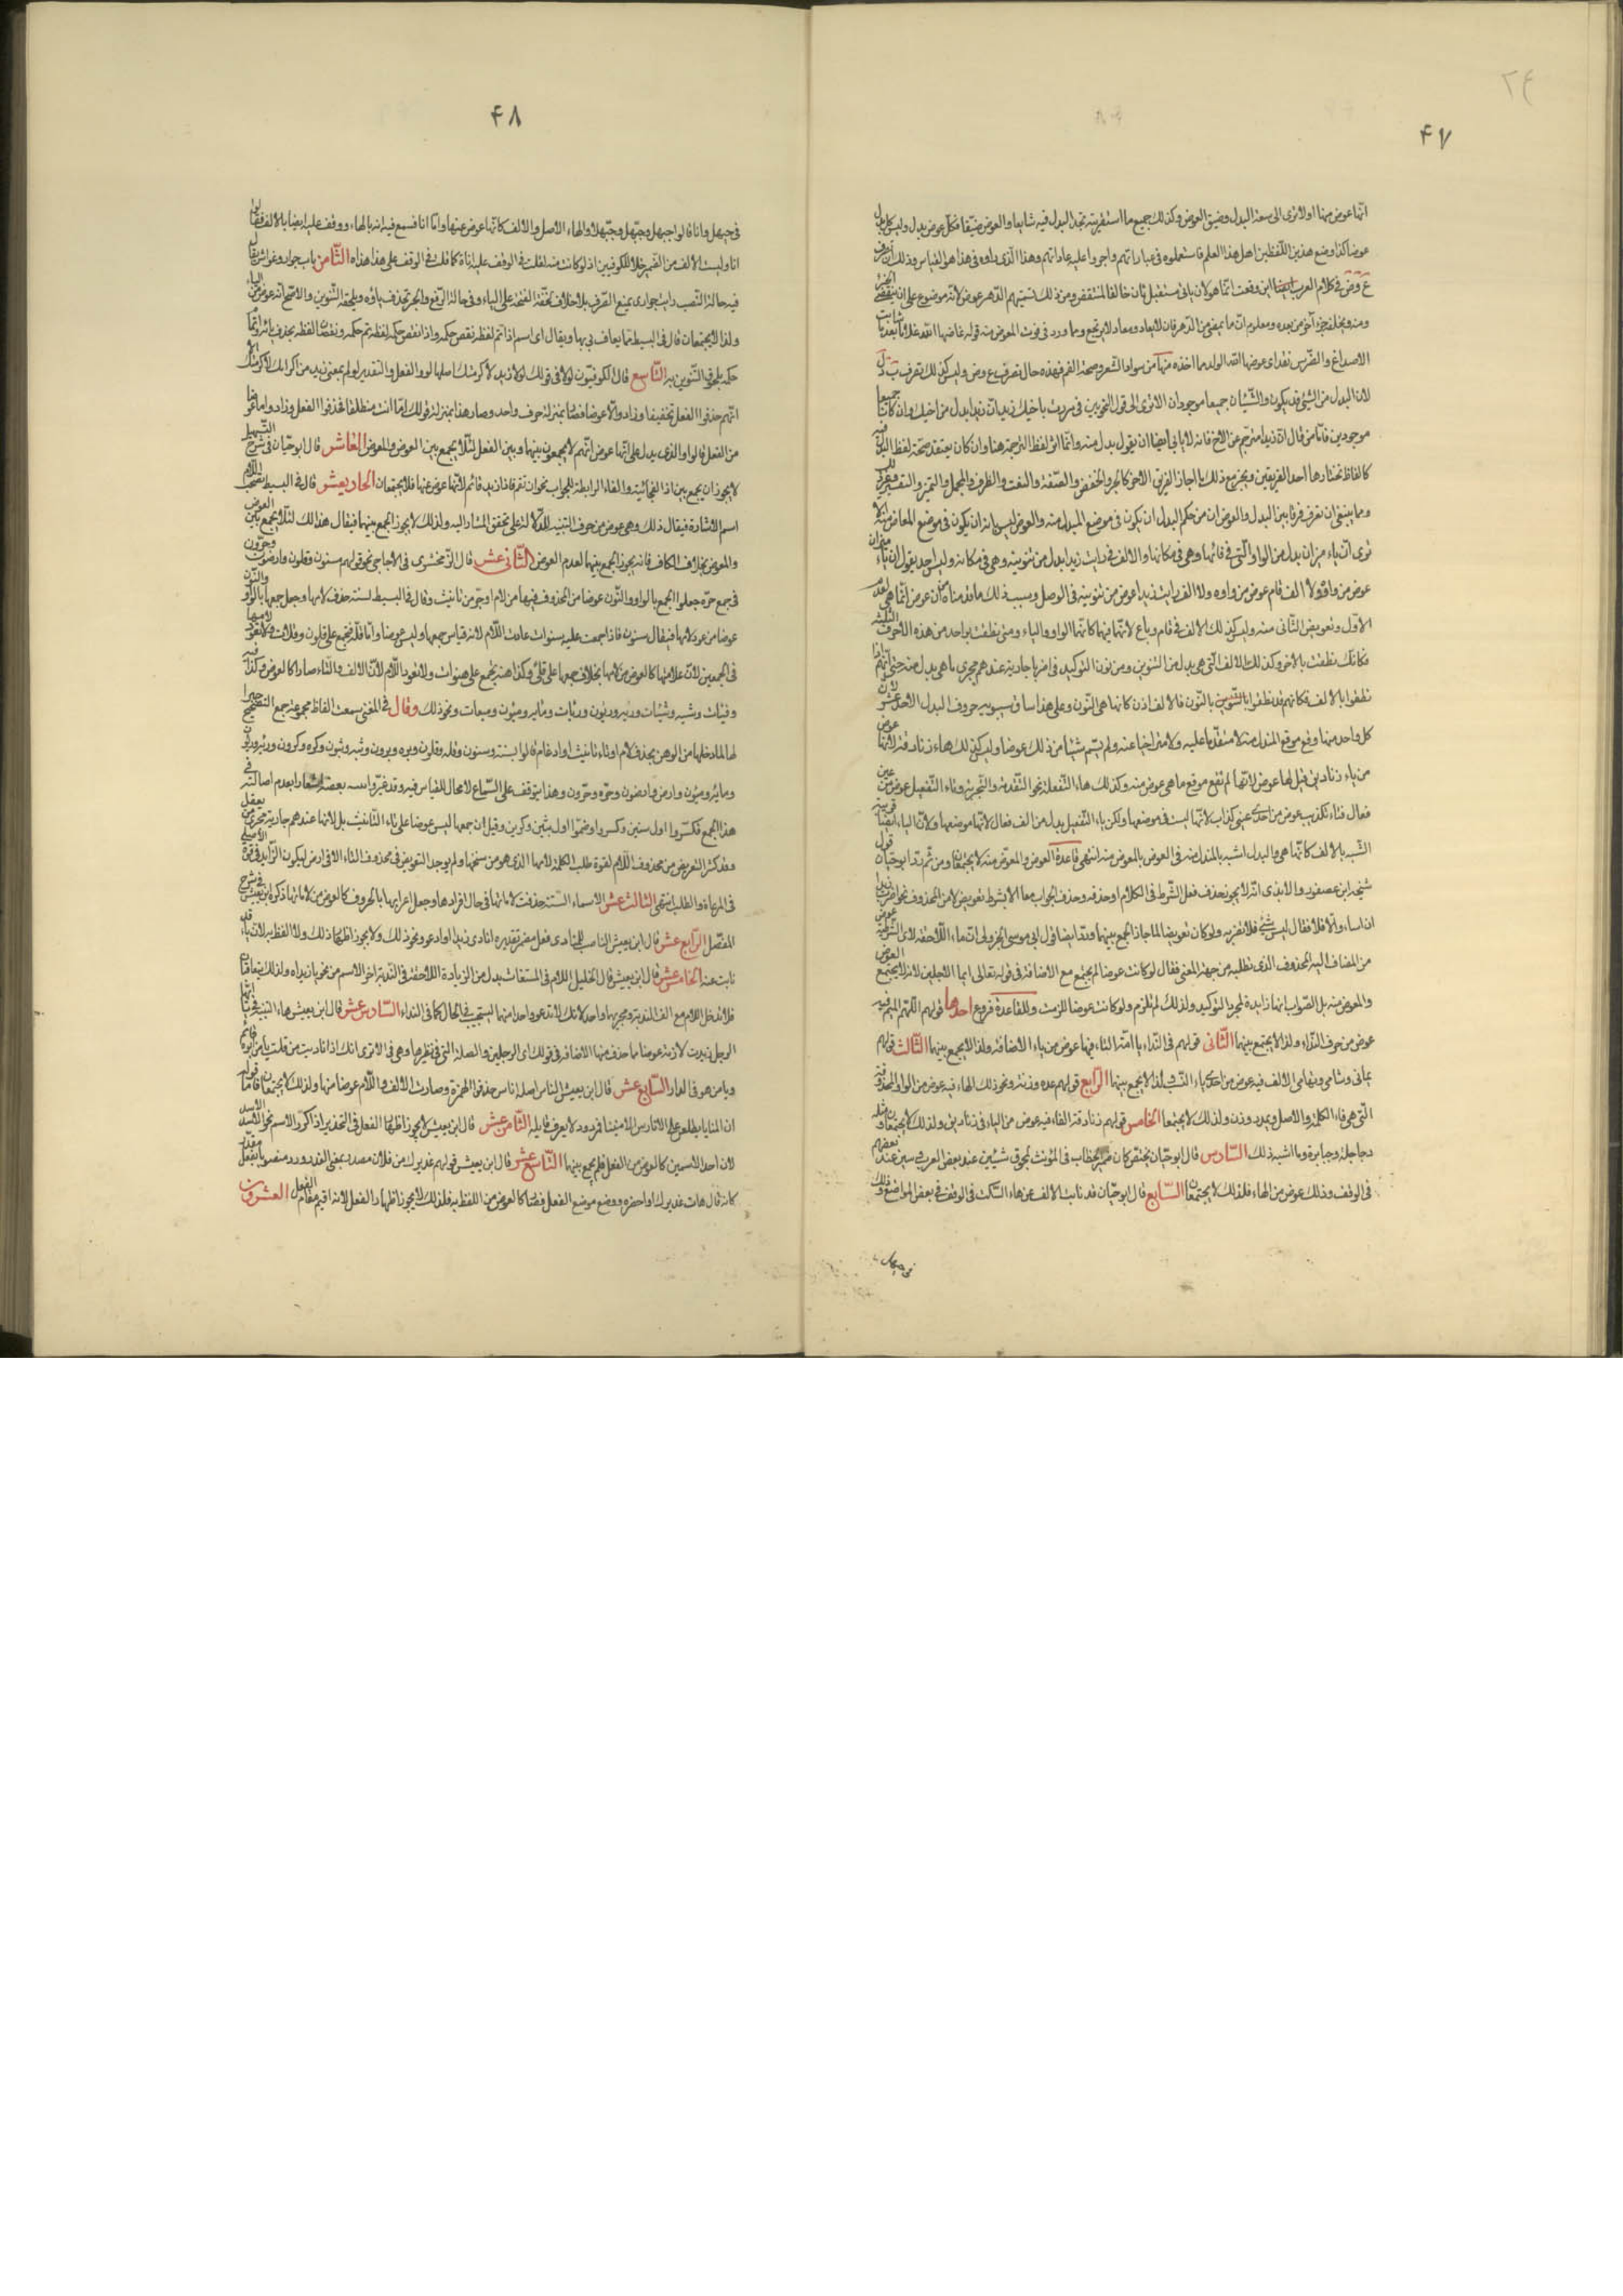 ٤٧
انها عوض منها اولا ترى الى سعة البدل وضيق العوض وكذلك جميع ما استقريته تجد البدل فيه شايعا والعوض ضيقا فكل عوض بدل وليس كل بدل
عوضا كذا وضع هذين اللفظين اهل هذا العلم فاستعملوه في عباراتهم واجروا عليه عاداتهم وهذا الذى راوه في هذا هو القياس وذلك ان تصرف
ع وض في كلام العرب اين وقعت انما هو لان ياتى مستقبل ثان خالفا لمنتقض ومن ذلك تسميتهم الدهر عوض لانه موضوع على ان ينقضى الجزء
منه ويخلفه جزء آخر من بعده ومعلوم ان ما يمضى من الدهر فان لا يعاد ومعاد لا يرتجع ومما ورد في فوت المعوض منه قوله عاضها الله غلاما بعد ما شابت
الاصداغ والضرس نقد اى عوضها الله الولد مما اخذه منها من سواد الشعر وصحة الفم فهذه حال تصرف ع وض وليس كذلك تصرف ب د ل
لان البدل من الشئ قد يكون والشيئان جميعا موجودان الا ترى الى قول النحويين في مررت باخيك زيد ان زيدا بدل من اخيك وان كانا جميعا
موجودين فاما من قال ان زيدا مترجم عن الاخ فانه لا يابى ايضا ان يقول بدل منه وانما اثر لفظ الترجمة هنا وان كان يعتقد صحة لفظ البدل فيه
كالفاظ تختارها احد الفريقين ويجيز مع ذلك ما اجاز الفريق الآخر كالجر والخفض والصفة والنعت والظرف والمحل والتمييز والتفسير وغير ذلك
ومما ينبغى ان تعرف فرقا بين البدل والعوض ان من حكم البدل ان يكون في موضع المبدل منه والعوض ليس بابه ان يكون في موضع المعاض منه الا
ترى ان ياء ميزان بدل من الواو التى هى فائها وهى في مكانها والالف في رايت زيدا بدل من تنوينه وهى في مكانه وليس احد يقول ان ياء ميزان
عوض من واو ولا الف قام عوض من واوه ولا الف رايت زيدا عوض من تنوينه في الوصل وسبب ذلك ما قدمناه من ان عوض انما هى لعدم
الاول وتعويض الثانى منه وليس كذلك الالف في قام وباع لانها فيهما كانها الواو والياء ومتى نطقت بواحد من هذه الاحرف الثلثة
فكانك نطقت بالآخر وكذلك الالف التى هى بدل من التنوين ومن نون التوكيد في اضربا جارية عندهم مجرى ما هى بدل منه حتى انهم اذا
نطقوا بالالف فكانهم قد نطقوا بالتنوين بالنون فالالف اذن كانها هى النون وعلى هذا ساق سيبويه حروف البدل الاحد عشر لان
كل واحد منها وقع موقع المبدل منه لا متقدما عليه ولا متراخيا عنه ولم يسم شيئا من ذلك عوضا وليس كذلك هاء زنادقة لانها عوض
من ياء زناديق قيل لها عوض لانها لم تقع موقع ما هى عوض منه وكذلك هاء التفعلة نحو التقدمة والتجربة وتاء التفعيل عوض من عين
فعال فتاء تكذيب عوض من احدى عينى كذاب لانها ليست في موضعها ولكن ياء التفعيل بدل من الف فعال لانها موضعها ولان الياء ايضا قريبة
الشبه بالالف فكانها هى والبدل اشبه بالمبدل منه في العوض بالمعوض منه انتهى قاعدة العوض والمعوض منه لا يجتمعان ومن ثم رد ابو حيان قول
شيخه ابن عصفور والابذى انه لا يجوز حذف فعل الشرط في الكلام او حذفه وحذف الجواب معا الا بشرط تعويض لا من المحذوف نحو اضرب زيدا
ان اساء والا فلا فقال ليس بشئ فلا تضربه ولو كان تعويضا لما جاز الجمع بينهما ورد ايضا قول ابى موسى الجزولى ان ما اللاحقة لاى الشرطية عوض
من المضاف اليه المحذوف الذى تطلبه من جهة المعنى فقال لو كانت عوضا لم يجتمع مع الاضافة في قوله تعالى ايما الاجلين لانه لا يجتمع العوض
والمعوض منه بل الصواب انها زايدة لمجرد التوكيد ولذلك لم تلزم ولو كانت عوضا للزمت وللقاعدة فروع احدها قولهم اللهم الميم فيه
عوض من حرف النداء ولذا لا يجتمع بينهما الثانى قولهم في النداء يا امت التاء فيها عوض من ياء الاضافة ولذا لا يجمع بينهما الثالث قولهم
يمانى وشامى وتهامى الالف فيه عوض من احدى ياء النسب لذا لا يجمع بينهما الرابع قولهم عدة وزنة ونحو ذلك الهاء فيه عوض من الواو المحذوفة
التى هى فاء الكلمة والاصل وعد ووزن ولذلك لا يجتمعا الخامس قولهم زنادقة الهاء فيه عوض من الياء في زناديق ولذلك لا يجتمعان ومثله
دجاجلة وجبابرة وما اشبه ذلك السادس قال ابو حيان يختص كان ضمير الخطاب في المؤنث لحوق شين عند بعض العرب وسين عند بعضهم
في الوقف وذلك عوض من الهاء فلذلك لا يجتمعان السابع قال ابو حيان قد نابت الالف عن هاء السكت في الوقف في بعض المواضع وذلك
في حيهل
٤٨
في حيهل وانا قالوا حيهل وحيهل وحيهلا والهاء الاصل والالف كانها عوض عنها واما انا فسمع فيه انه بالهاء ووقف عليه ايضا بالالف فقالوا
انا وليست الالف من الضمير خلافا للكوفيين اذ لو كانت منه لقلت في الوقف عليه اناه كما قلت في الوقف على هذا هذاه الثامن باب جوار وغواش يقال
فيه حالة النصب رايت جوارى بمنع الصرف بلا خلاف لخفة الفتحة على الياء وفي حالة الرفع والجر تحذف ياؤه ويلحقه التنوين والاصح انه عوض من الياء
ولذا لا يجتمعان قال في البسيط مما يعاف بى بها ويقال اى اسم اذا تم لفظه نقص حكمه واذا نقص حكمه لفظه تم حكمه ونقصان لفظه بحذف يائه واتمام
حكمه بلحوق التنوين به التاسع قال الكوفيون لولا في قولك لولا زيد لاكرمتك اصلها لو والفعل والتقدير لو لم يمنعنى زيد من اكرامك لاكرمتك الا
انهم حذفوا الفعل تخفيفا وزادوا لا عوضا فصار بمنزلة حرف واحد وصار هذا بمنزلة قولك اما انت منطلقا فحذفوا الفعل وزادوا ما عوضا
من الفعل قالوا والذى يدل على انها عوض انهم لا يجمعون بينها وبين الفعل لئلا يجمع بين العوض والمعوض العاشر قال ابو حيان في شرح التسهيل
لا يجوز ان يجمع بين اذا الفجائية والفاء الرابطة للجواب نحو ان تقم فاذا زيد قائم لانها عوض عنها فلا يجتمعان الحادى عشر قال في البسيط تصحب اللام
اسم الاشارة فيقال ذلك وهى عوض من حرف التنبيه للدلالة على تحقق المشار اليه ولذلك لا يجوز الجمع بينهما فيقال هذالك لئلا يجمع بين العوض
والمعوض بخلاف الكاف فانه يجوز الجمع بينهما لعدم العوض الثانى عشر قال الزمخشرى في الاحاجى نحو قولهم سنون وقلون وارضون وحرون
في جمع حرة جعلوا الجمع بالواو والنون عوضا من المحذوف فيها من لام او حرف تانيث وقال في البسيط لسنة حذف لامها وجعل جمعها بالواو والنون
عوضا من عود لامها فيقال سنون فاذا جمعت عليه سنوات عادت اللام لانه قياس جمعها وليس عوضا واما قلة فتجمع على قلون وقلات ولا تعود لامها
في الجمعين لان علامتهما كالعوض من لامها بخلاف جمعها على قلى وكذا هنة يجمع على هنوات ولا تعود اللام لان الالف والتاء صار كالعوض وكذا فئة
وفئات وشية وشيات ودية ودئون وديات ومائة ومئون ومئات ونحو ذلك وقال في المغنى سمعت الفاظ مجموعة جمع التصحيح جبرا
لها لما دخلها من الوهن بحذف لام او تاء تانيث او ادغام قالوا سنة وسنون وقلة وقلون وبرة وبرون وثبة وثبون وكرة وكرون ورئة ورئون
ومائة ومئون وارض وارضون وحرة وحرون وهذا يتوقف على السماع لا مجال للقياس فيه وقد غيروا بعضه اشعارا بعدم اصالته في
هذا الجمع فكسروا اول سنين وكسروا وضموا اول ثبين وكرين وقيل ان جمعها ليس عوضا على تاء التانيث بل لانها عندهم جارية مجرى من يعقل
وقد كثر التعويض من محذوف اللام لقوة طلب الكلمة لامها الذى هو من سنخها ولم يوجد التعويض في محذوف التاء الا في ارض ليكون الزايد في قوة الاصلى
في المراعاة والطلب انتهى الثالث عشر الاسماء الستة حذفت لاماتها في حال افرادها وجعل اعرابها بالحروف كالعوض من لاماتها ذكره ابن يعيش في شرح
المفصل الرابع عشر قال ابن يعيش الناصب للمنادى فعل مضمر تقديره انادى زيدا او ادعو ونحو ذلك ولا يجوز اظهار ذلك ولا اللفظ به لان ياء قد
نابت عنه الخامس عشر قال ابن يعيش قال الخليل اللام في المستغاث بدل من الزيادة اللاحقة في الندبة آخر الاسم من نحو يا زيداه ولذلك يتعاقبان
فلا تدخل اللام مع الف الندبة ومجراهما واحد لانك لا تدعو واحدا منهما ليستجيب في الحال كما في النداء السادس عشر قال ابن يعيش هاء التنبيه في يا ايها
الرجل زيدت لازمة عوضا مما حذف منها الاضافة في قولك اى الرجلين والصلة التى في نظيرها وهى من الا ترى انك اذا ناديت من قلت يا من ابوه قائم
ويا من هو في الدار السابع عشر قال ابن يعيش الناس اصله اناس حذفوا الهمزة وصارت الالف واللام عوضا منها ولذلك لا يجتمعان فاما قوله
ان المنايا يطلعن على الاناس الامنينا فمردود لا يعرف قايله الثامن عشر قال ابن يعيش لا يجوز اظهار الفعل في التحذير اذا كرر الاسم نحو الاسد الاسد
لان احد الاسمين كالعوض من الفعل فلم يجمع بينهما التاسع عشر قال ابن يعيش قولهم عذيرك من فلان مصدر بمعنى العذر ورد منصوبا بفعل مقدر
كانه قال هات عذيرك او احضره ووضع موضع الفعل فصار كالعوض من اللفظ به فلذلك لا يجوز اظهار الفعل لانه اقيم مقام الفعل العشرون